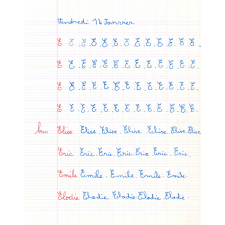 Vendredi 16 Janvier
E E E E E E E E E E E
E E E E E E E E E E E
E E E E E E E E E E E
E E E E E E E E E E E
bien Elise Elise Elise Elise Elise Elise Elise
Eric Eric Eric Eric Eric Eric Eric
Emile Emile Emile Emile Emile
Elodie Elodie Elodie Elodie Elodie